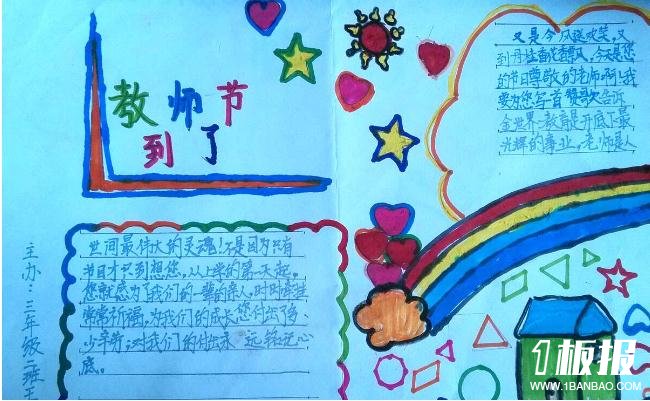 教师节
到了
又是今风送欢笑,又
到丹桂香花飘,今天是您
的节日尊敬的老师啊!我
要为您写首赞歌告诉
全世界教育是开底下最
光辉的事业,老师是人
世间最伟大的灵魂!不是因为只有
节日才只到想您,从上学的第一天起,
您就成为了我们的一辈的亲人,时时牵
常常祈福,为我们的成长您付出了多
少辛劳;对我们的付出永远铭记心
底。
主办:三年级二班王
1板报
WWW.1BANBAO.COM